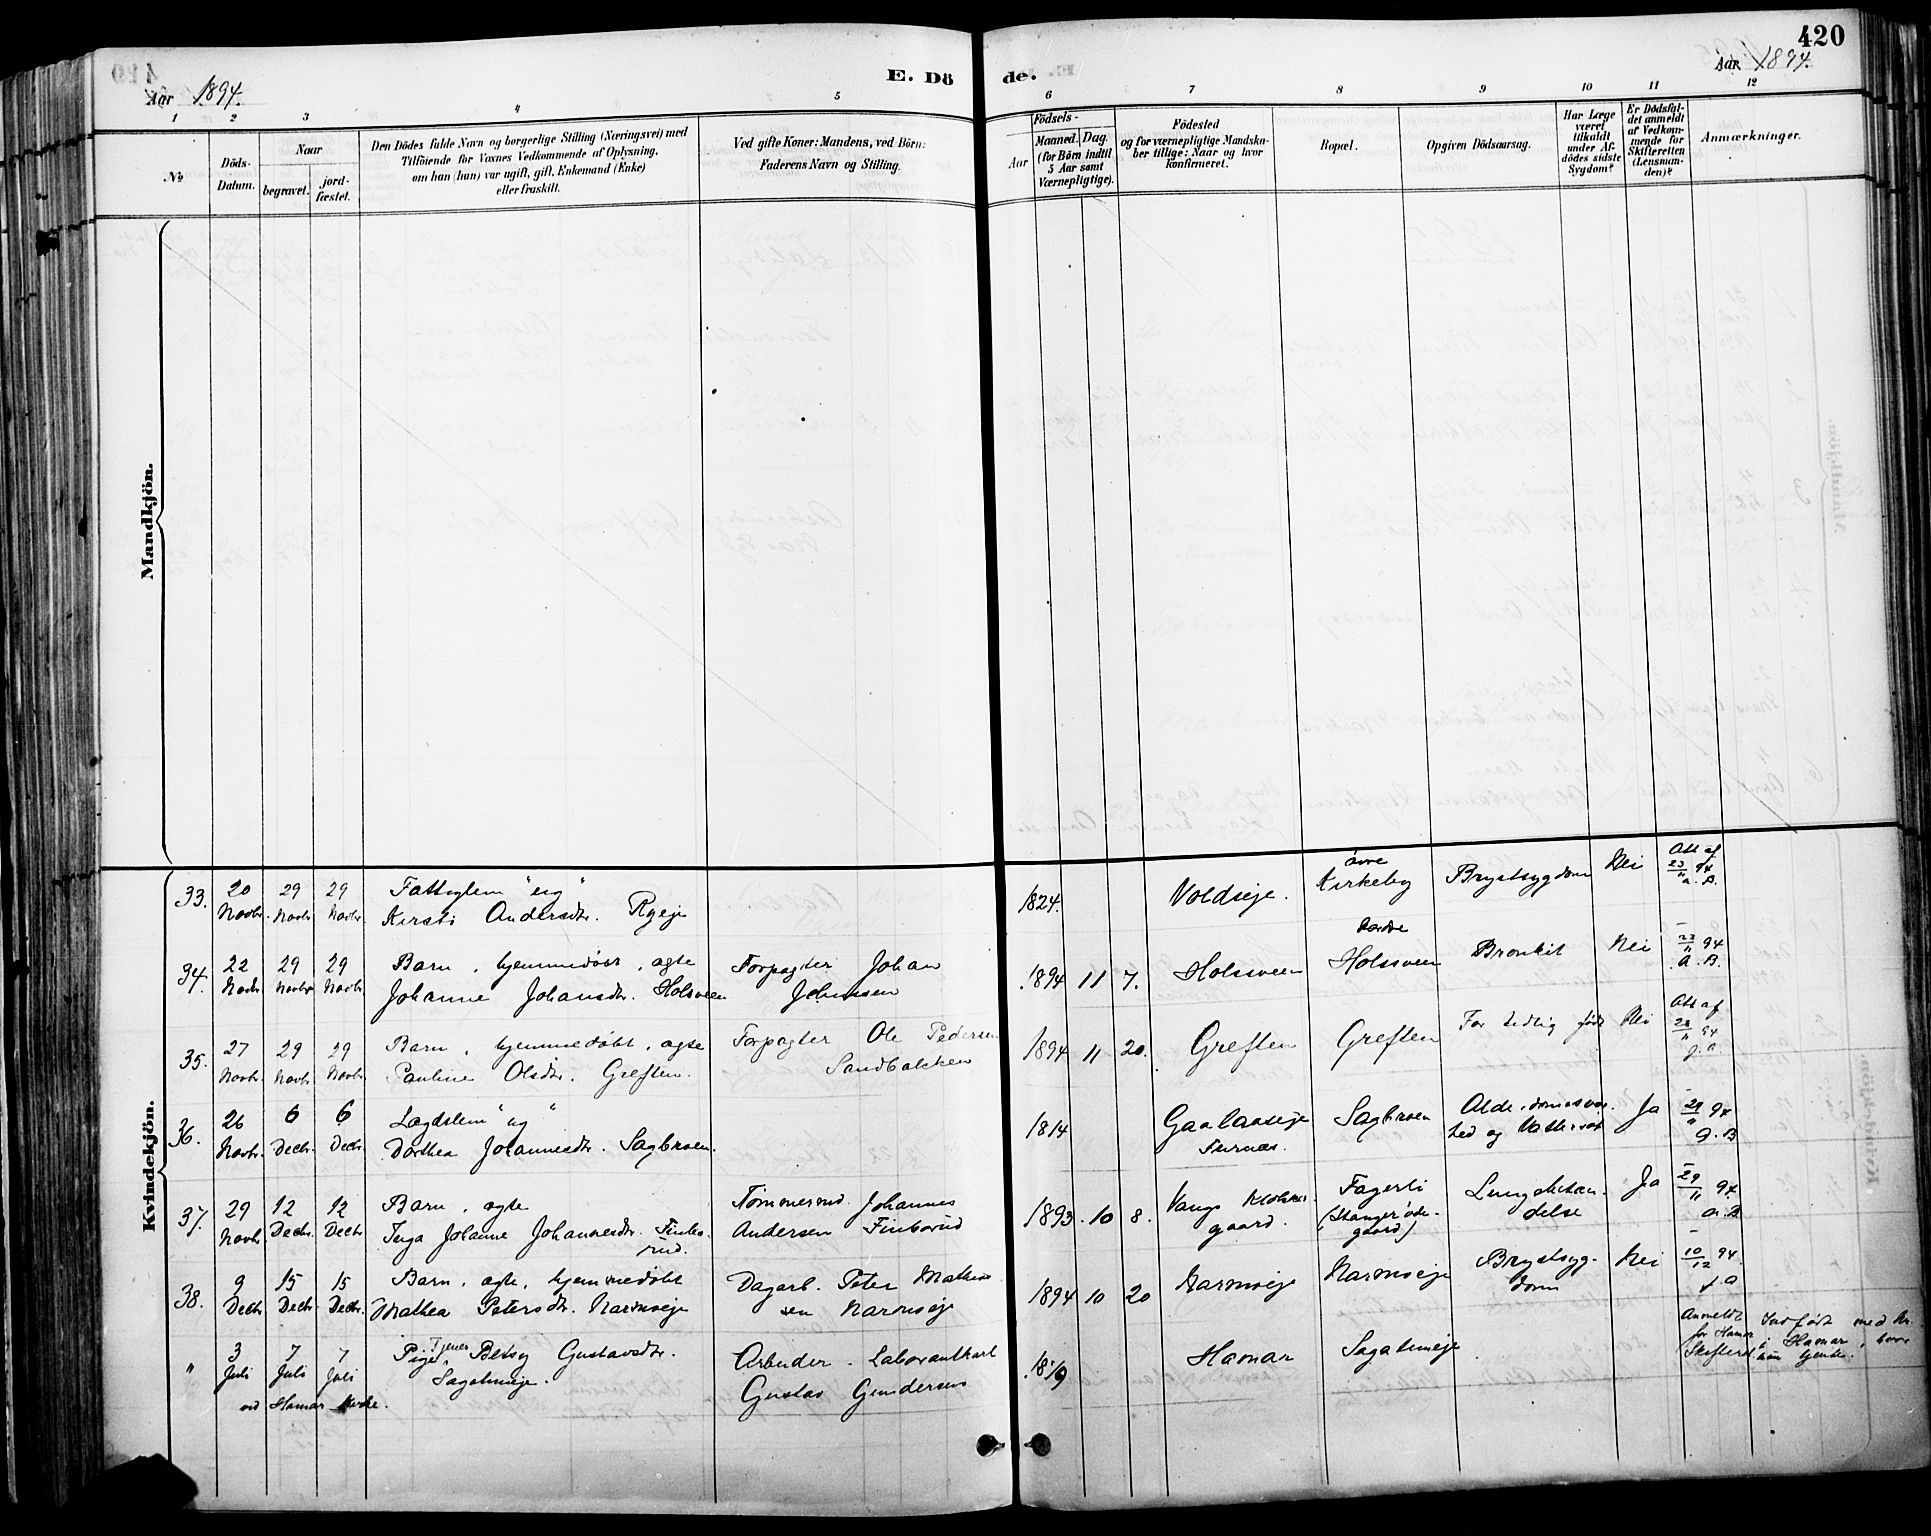 420
Aar 1894.
E. Dö
de.
Aar 1894.
1 2 3 4 5 6 7 8 9 10 11 12
No
Döds-
Datum.
Naar
begravet.
jord-
fæstet.
Den Dödes fulde Navn og borgerlige Stilling (Næringsvei) med
Tilföiende for Voxnes Vedkommende af Oplysning,
om han (hun) var ugift, gift, Enkemand (Enke)
eller fraskilt.
Ved gifte Koner: Mandens, ved Börn:
Faderens Navn og Stilling.
Födsels-
Aar
Maaned.
Dag.
(for Börn indtil
5 Aar samt
Værnepligtige).
Födested
og for værnepligtige Mandska-
ber tillige: Naar og hvor
konfirmeret.
Bopæl.
Opgiven Dödsaarsag.
Har Læge
været
tilkaldt
under Af-
dödes sidste
Sygdom?
Er Dödsfal-
det anmeldt
af Vedkom-
mende for
Skifteretten
(Lensman-
den)?
Anmærkninger.
Mandkjön.
Kvindekjön.
33. 20 Novbr. 29 Novbr. 29 Novbr. Fattiglem "ug"
Kirsti Andersdtr. Rgeje
1824. Voldseje. övre Kirkeby Brystsygdom Nei Att af 23/11 94 A.B.
34. 22 Novbr. 29 Novbr. 29 Novbr. Barn, hjemmedøbt, ægte
Johanne Johansdtr. Holsveen
Forpagter Johan
Johnssen
1894 11 7. Holsveen Nordre Holsveen Bronkit Nei 23/11 94 A.B.
35. 27 Novbr. 29 Novbr. 29 Novbr. Barn, hjemmedøbt, ægte
Pauline Olsdtr. Greften.
Forpagter Ole Pedersen
Sandbakken
1894 11 20. Greften Greften For tidlig født Nei Att af 28/11 94
36. 26 Novbr. 6 Decbr. 6 Decbr. Lægdslem "ug"
Dorthea Johannesdtr. Sagbroen.
1814 Gaalaaseje
Furnæs. Sagbroen Alderdomssvag-
hed og Vattersot Ja 29/11 94
37. 29 Novbr. 12 Decbr. 12 Decbr. Barn, ægte
Inga Johanne Johannesdtr. Finbo-
rud.
Tømmermd. Johannes
Andersen Finborud
1893. 10 8. Vangs Klokker-
gaard. Fagerli
(Stanger øde-
gaard) Lungebetæn-
delse Ja 29/11 94
38. 9 Decbr. 15 Decbr. 15 Decbr. Barn, ægte, hjemmedøbt
Mathea Petersdtr. Narmoeje
Dagarb. Peter Mathis-
sen Narmoeje
1894 10 20 Narmoeje Narmoeje Brystsyg-
dom Nei 10/12 94
" 3 Juli 7 Juli 7 Juli Tjener
Pige, Betsy Gustavsdtr.
Sagatuneje.
ved Hamar Kirke.
Arbeider
Gustav Gundersen
Hamar Sagatuneje
Anmeldt
for Hamar
Skifteret.
Indført med Nr.
i Hamar, hvor
hun tjente.